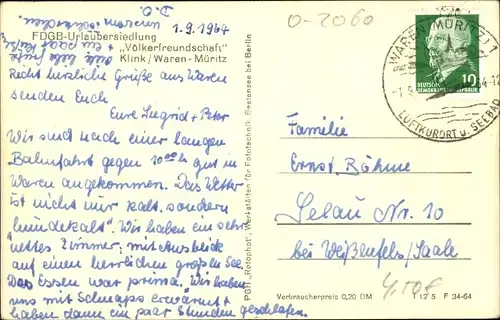 FDGB-Urlaubersiedlung
„Völkerfreundschaft"
Klink/Waren-Müritz
1.9.1964
Recht herzliche Grüße aus Waren
senden Euch
Eure Ingrid + Peter
Wir sind nach einer langen
Bahnfahrt gegen 10⁰⁰ h gut in
Waren angekommen. Das Wetter
ist nicht nur kalt, sondern
"hundekalt". Wir haben ein sehr
nettes Zimmer, mit Ausblick
auf einen herrlichen großen See.
Das Essen war prima. Wir haben
uns mit Schnaps erwärmt +
haben dann ein paar Stunden geschlafen.
D.O.
PGH „Rotophot" Werkstätten für Fototechnik, Bestensee bei Berlin
0-2060
WAREN (MÜRITZ)
LUFTKURORT u. SEEBAD
10
DEUTSCHE
DEMOKRATISCHE REPUBLIK
Familie
Ernst Böhme
Selau Nr. 10
bei Weißenfels/Saale
4,50€
Verbraucherpreis 0,20 DM
12 5 F 34-64